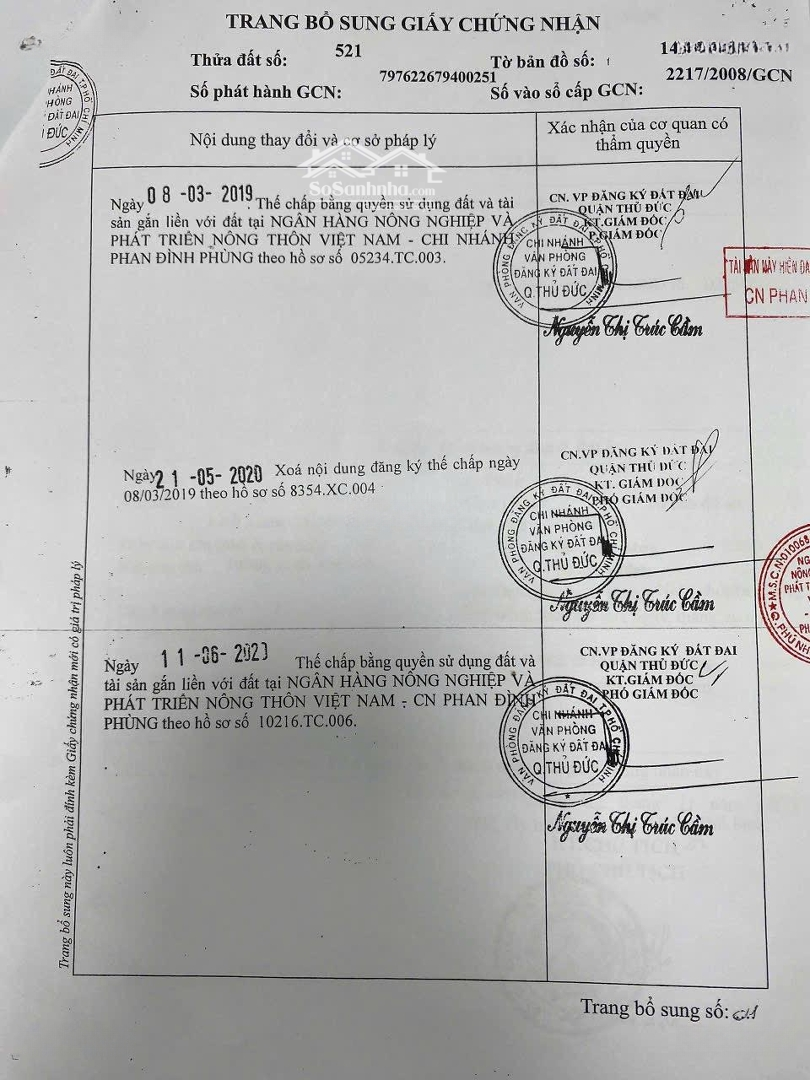 TRANG BỔ SUNG GIẤY CHỨNG NHẬN
Thửa đất số: 521
Tờ bản đồ số:
Số phát hành GCN: 797622679400251
Số vào sổ cấp GCN: 2217/2008/GCN
Nội dung thay đổi và cơ sở pháp lý
Xác nhận của cơ quan có
thẩm quyền
SoSanhnha.com
Ngày 08-03-2019 Thế chấp bằng quyền sử dụng đất và tài
sản gắn liền với đất tại NGÂN HÀNG NÔNG NGHIỆP VÀ
PHÁT TRIỂN NÔNG THÔN VIỆT NAM - CHI NHÁNH
PHAN ĐÌNH PHÙNG theo hồ sơ số 05234.TC.003.
CN. VP ĐĂNG KÝ ĐẤT ĐAI
QUẬN THỦ ĐỨC
KT.GIÁM ĐỐC
P.GIÁM ĐỐC
VĂN PHÒNG ĐĂNG KÝ ĐẤT ĐAI T.PHỐ CHÍ MINH
CHI NHÁNH
VĂN PHÒNG
ĐĂNG KÝ ĐẤT ĐAI
Q.THỦ ĐỨC
Nguyễn Thị Trúc Cầm
CN PHAN
Ngày 21-05-2020 Xoá nội dung đăng ký thế chấp ngày
08/03/2019 theo hồ sơ số 8354.XC.004
CN.VP ĐĂNG KÝ ĐẤT ĐAI
QUẬN THỦ ĐỨC
KT. GIÁM ĐỐC
PHÓ GIÁM ĐỐC
VĂN PHÒNG ĐĂNG KÝ ĐẤT ĐAI T.PHỐ CHÍ MINH
CHI NHÁNH
VĂN PHÒNG
ĐĂNG KÝ ĐẤT ĐAI
Q.THỦ ĐỨC
Nguyễn Thị Trúc Cầm
Ngày 11-06-2020 Thế chấp bằng quyền sử dụng đất và
tài sản gắn liền với đất tại NGÂN HÀNG NÔNG NGHIỆP VÀ
PHÁT TRIỂN NÔNG THÔN VIỆT NAM - CN PHAN ĐÌNH
PHÙNG theo hồ sơ số 10216.TC.006.
CN.VP ĐĂNG KÝ ĐẤT ĐAI
QUẬN THỦ ĐỨC
KT.GIÁM ĐỐC
PHÓ GIÁM ĐỐC
VĂN PHÒNG ĐĂNG KÝ ĐẤT ĐAI T.PHỐ CHÍ MINH
CHI NHÁNH
VĂN PHÒNG
ĐĂNG KÝ ĐẤT ĐAI
Q.THỦ ĐỨC
Nguyễn Thị Trúc Cầm
Trang bổ sung này luôn phải đính kèm Giấy chứng nhận mới có giá trị pháp lý
Trang bổ sung số: 01